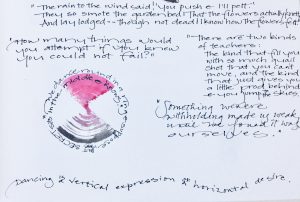 "The rain to the wind said, 'You push & I'll pelt.'
They so smote the garden bed That the flowers actually knelt,
And lay lodged - though not dead. I know how the flowers felt."
"How many things would
you attempt if you knew
you could not fail."
"There are two kinds
of teachers:
the kind that fill you
with so much quail
shot that you can't
move, and the kind
that just gives you
a little prod behind
& you jump to skies."
"Something we were
withholding made us weak
until we found it was
ourselves."
Dancing is a vertical expression of horizontal desire.